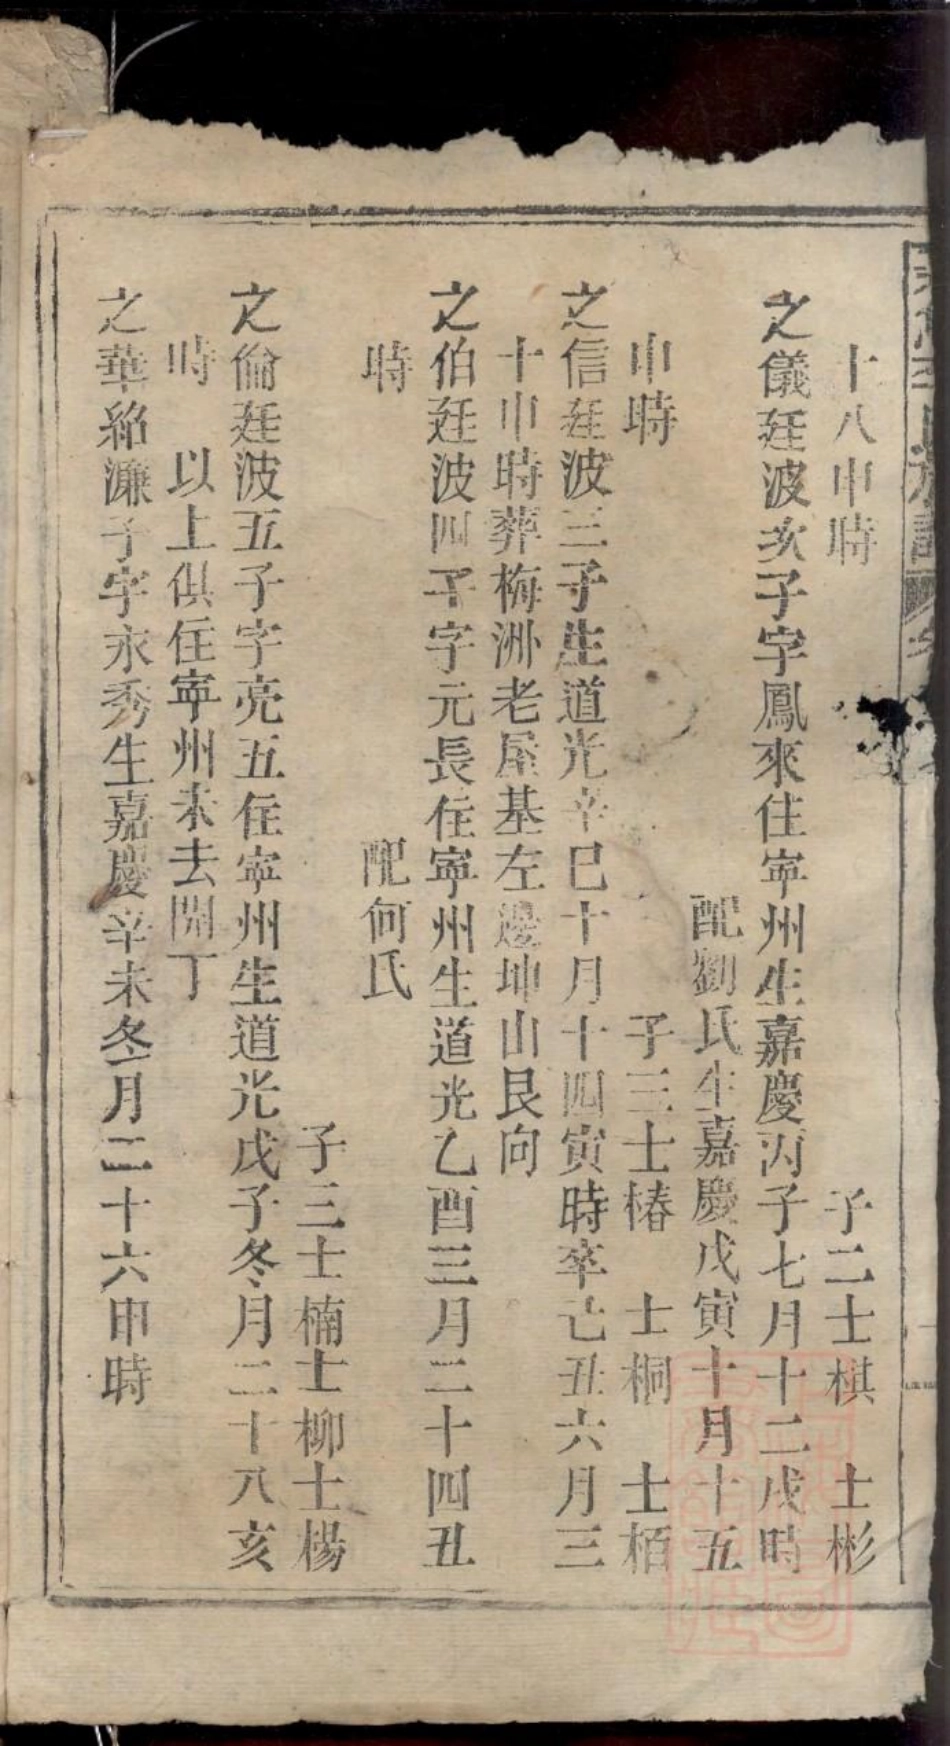 十八申時 子二士棋 士彬
之儀廷波次子字鳳來住寧州生嘉慶丙子七月十二戌時
配劉氏生嘉慶戊寅十月十五
申時 子三士椿 士桐 士栢
之信廷波三子生道光辛巳十月十四寅時卒己丑六月三
十申時葬梅洲老屋基左邊坤山艮向
之伯廷波四子字元長住寧州生道光乙酉三月二十四丑
時 配何氏
子三士楠士柳士楊
之倫廷波五子字亮五住寧州生道光戊子冬月二十八亥
時 以上俱住寧州未去開丁
之華紹濂子字永秀生嘉慶辛未冬月二十六申時